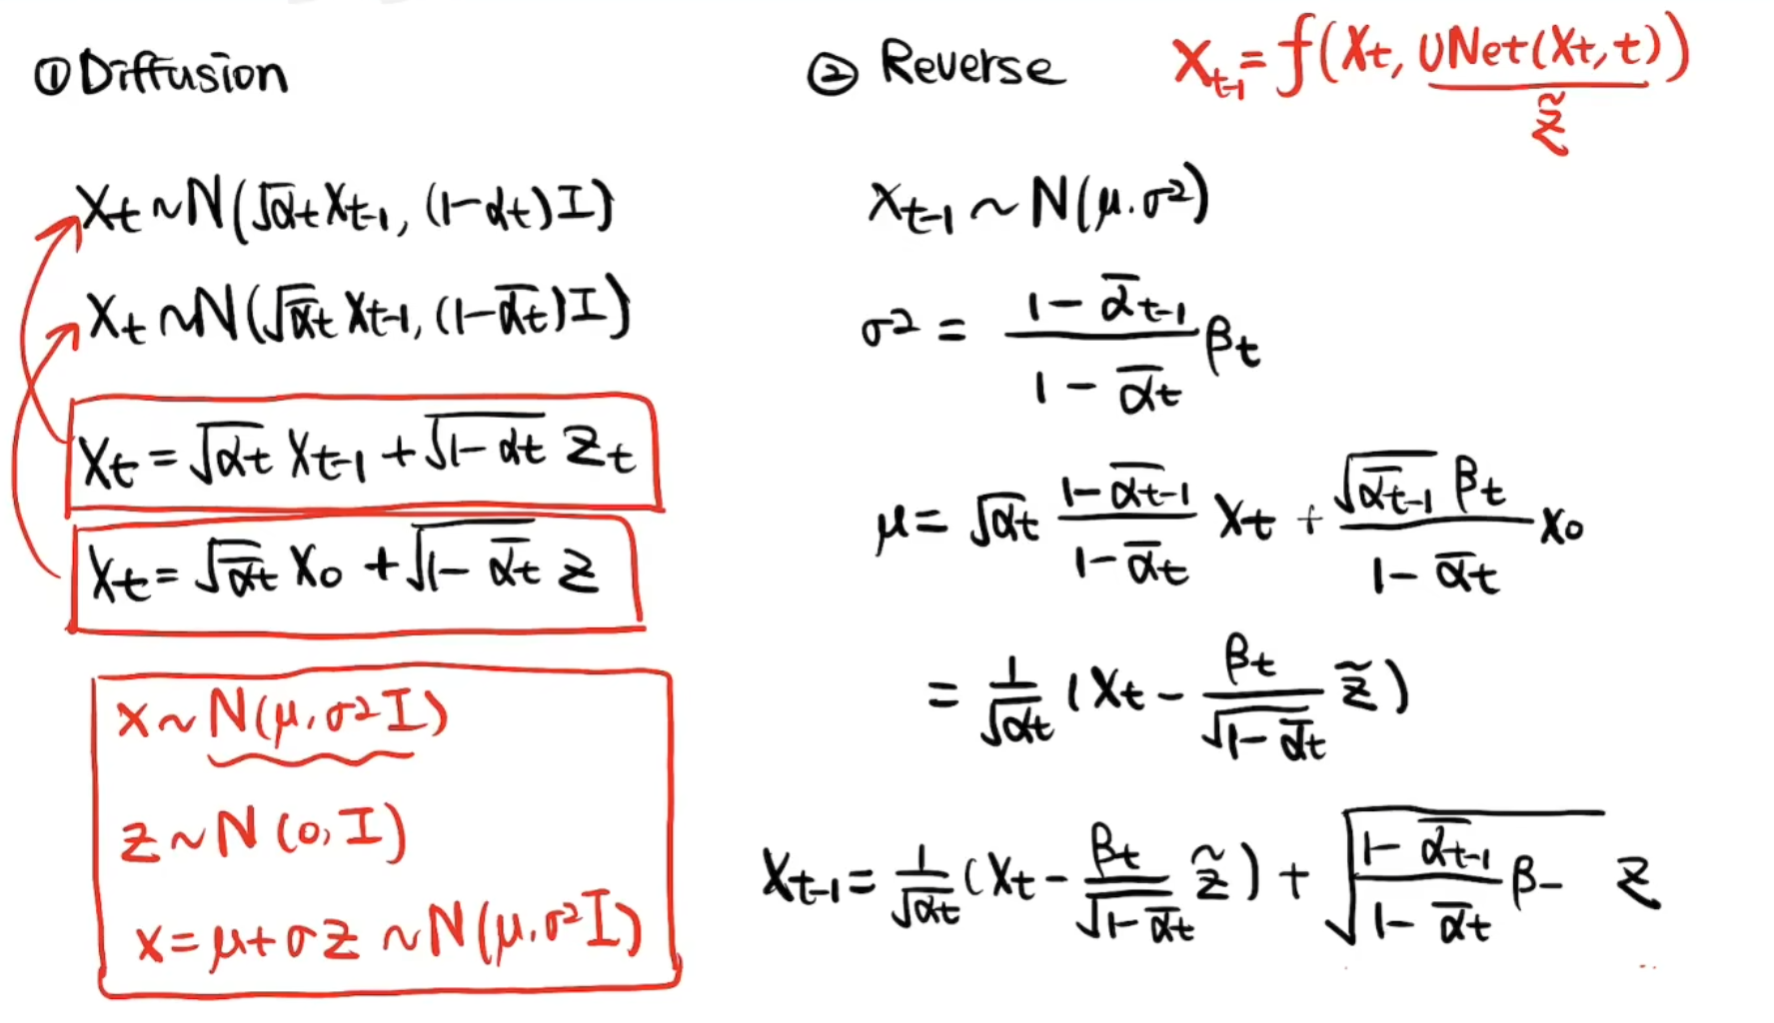 ① Diffusion
Xt ~ N(√αt Xt-1, (1-αt)I)
Xt ~ N(√ᾱt Xt-1, (1-ᾱt)I)
Xt = √αt Xt-1 + √(1-αt) Zt
Xt = √ᾱt X0 + √(1-ᾱt) Z
X ~ N(μ, σ²I)
Z ~ N(0, I)
X = μ + σZ ~ N(μ, σ²I)
② Reverse
Xt-1 = f(Xt, UNet(Xt, t))
z̃
Xt-1 ~ N(μ, σ²)
σ² = (1-ᾱt-1)/(1-ᾱt) βt
μ = √αt (1-ᾱt-1)/(1-ᾱt) Xt + (√ᾱt-1 βt)/(1-ᾱt) X0
= 1/√αt (Xt - βt/√(1-ᾱt) z̃)
Xt-1 = 1/√αt (Xt - βt/√(1-ᾱt) z̃) + √((1-ᾱt-1)/(1-ᾱt) β-) Z